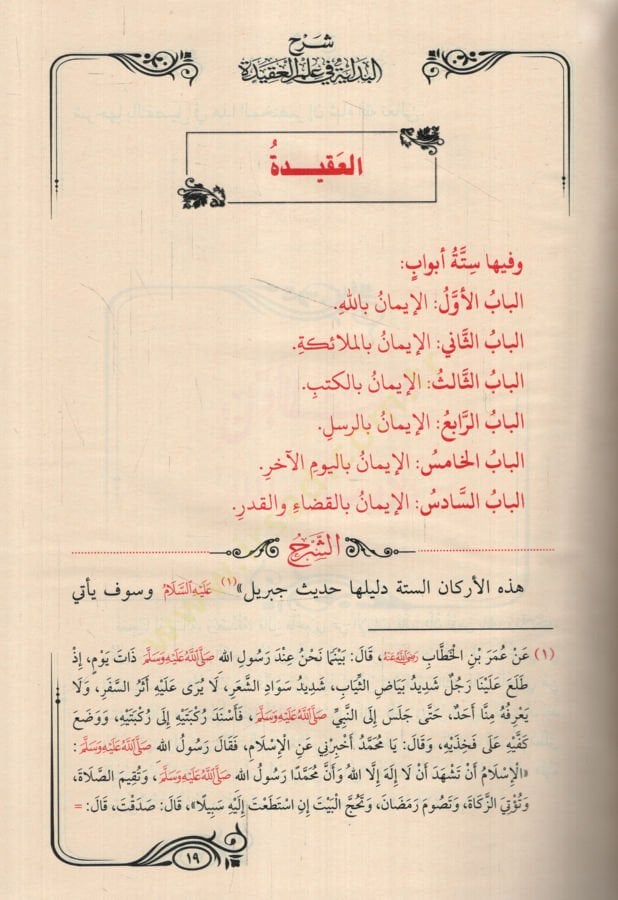 شرح
البداية في علم العقيدة
العَقيـــدةُ
وفيها سِتَّةُ أبوابٍ:
البابُ الأوَّلُ: الإيمانُ باللهِ.
البابُ الثَّاني: الإيمانُ بالملائكةِ.
البابُ الثَّالثُ: الإيمانُ بالكتبِ.
البابُ الرَّابعُ: الإيمانُ بالرسلِ.
البابُ الخامسُ: الإيمانُ باليومِ الآخرِ.
البابُ السَّادسُ: الإيمانُ بالقضاءِ والقدرِ.
الشَّرْحُ
هذه الأركان الستة دليلها حديث جبريل»(١) عَلَيْهِ السَّلَامُ وسوف يأتي
(١) عَنْ عُمَرَ بْنِ الْخَطَّابِ رَضِيَ اللَّهُ عَنْهُ، قَالَ: بَيْنَمَا نَحْنُ عِنْدَ رَسُولِ الله صَلَّى اللَّهُ عَلَيْهِ وَسَلَّمَ ذَاتَ يَوْمٍ، إِذْ
طَلَعَ عَلَيْنَا رَجُلٌ شَدِيدُ بَيَاضِ الثِّيَابِ، شَدِيدُ سَوَادِ الشَّعَرِ، لَا يُرَى عَلَيْهِ أَثَرُ السَّفَرِ، وَلَا
يَعْرِفُهُ مِنَّا أَحَدٌ، حَتَّى جَلَسَ إِلَى النَّبِيِّ صَلَّى اللَّهُ عَلَيْهِ وَسَلَّمَ، فَأَسْنَدَ رُكْبَتَيْهِ إِلَى رُكْبَتَيْهِ، وَوَضَعَ
كَفَّيْهِ عَلَى فَخِذَيْهِ، وَقَالَ: يَا مُحَمَّدُ أَخْبِرْنِي عَنِ الْإِسْلَامِ، فَقَالَ رَسُولُ الله صَلَّى اللَّهُ عَلَيْهِ وَسَلَّمَ:
«الْإِسْلَامُ أَنْ تَشْهَدَ أَنْ لَا إِلَهَ إِلَّا اللهُ وَأَنَّ مُحَمَّدًا رَسُولُ الله صَلَّى اللَّهُ عَلَيْهِ وَسَلَّمَ، وَتُقِيمَ الصَّلَاةَ،
وَتُؤْتِيَ الزَّكَاةَ، وَتَصُومَ رَمَضَانَ، وَتَحُجَّ الْبَيْتَ إِنِ اسْتَطَعْتَ إِلَيْهِ سَبِيلًا»، قَالَ: صَدَقْتَ، قَالَ: =
١٩